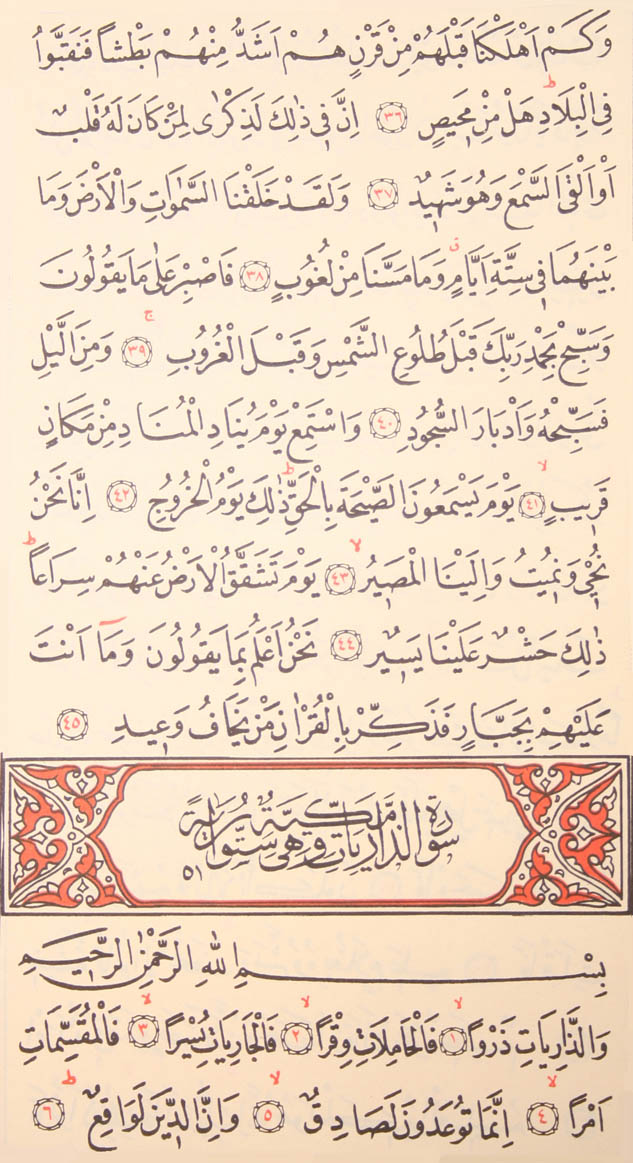 وَكَمْ اَهْلَكْنَا قَبْلَهُمْ مِنْ قَرْنٍ هُمْ اَشَدُّ مِنْهُمْ بَطْشاً فَنَقَّبُوا
فِي الْبِلَادِ ط هَلْ مِنْ مَحِيصٍ ٣٦ اِنَّ فِي ذٰلِكَ لَذِكْرٰى لِمَنْ كَانَ لَهُ قَلْبٌ
اَوْ اَلْقَى السَّمْعَ وَهُوَ شَهِيدٌ ٣٧ وَلَقَدْ خَلَقْنَا السَّمٰوَاتِ وَالْاَرْضَ وَمَا
بَيْنَهُمَا فِي سِتَّةِ اَيَّامٍ ق وَمَا مَسَّنَا مِنْ لُغُوبٍ ٣٨ فَاصْبِرْ عَلٰى مَا يَقُولُونَ
وَسَبِّحْ بِحَمْدِ رَبِّكَ قَبْلَ طُلُوعِ الشَّمْسِ وَقَبْلَ الْغُرُوبِ ج ٣٩ وَمِنَ الَّيْلِ
فَسَبِّحْهُ وَاَدْبَارَ السُّجُودِ ٤٠ وَاسْتَمِعْ يَوْمَ يُنَادِ الْمُنَادِ مِنْ مَكَانٍ
قَرِيبٍ لا ٤١ يَوْمَ يَسْمَعُونَ الصَّيْحَةَ بِالْحَقِّ ط ذٰلِكَ يَوْمُ الْخُرُوجِ ٤٢ اِنَّا نَحْنُ
نُحْيِ وَنُمِيتُ وَاِلَيْنَا الْمَصِيرُ لا ٤٣ يَوْمَ تَشَقَّقُ الْاَرْضُ عَنْهُمْ سِرَاعاً ط
ذٰلِكَ حَشْرٌ عَلَيْنَا يَسِيرٌ ٤٤ نَحْنُ اَعْلَمُ بِمَا يَقُولُونَ وَمَٓا اَنْتَ
عَلَيْهِمْ بِجَبَّارٍ فَذَكِّرْ بِالْقُرْاٰنِ مَنْ يَخَافُ وَعِيدِ ٤٥
سورة الذاريات مكية وهي ستون اية ٥١
بِسْمِ اللهِ الرَّحْمٰنِ الرَّحِيمِ
وَالذَّارِيَاتِ ذَرْواً لا ١ فَالْحَامِلَاتِ وِقْراً لا ٢ فَالْجَارِيَاتِ يُسْراً لا ٣ فَالْمُقَسِّمَاتِ
اَمْراً لا ٤ اِنَّمَا تُوعَدُونَ لَصَادِقٌ لا ٥ وَاِنَّ الدِّينَ لَوَاقِعٌ ط ٦